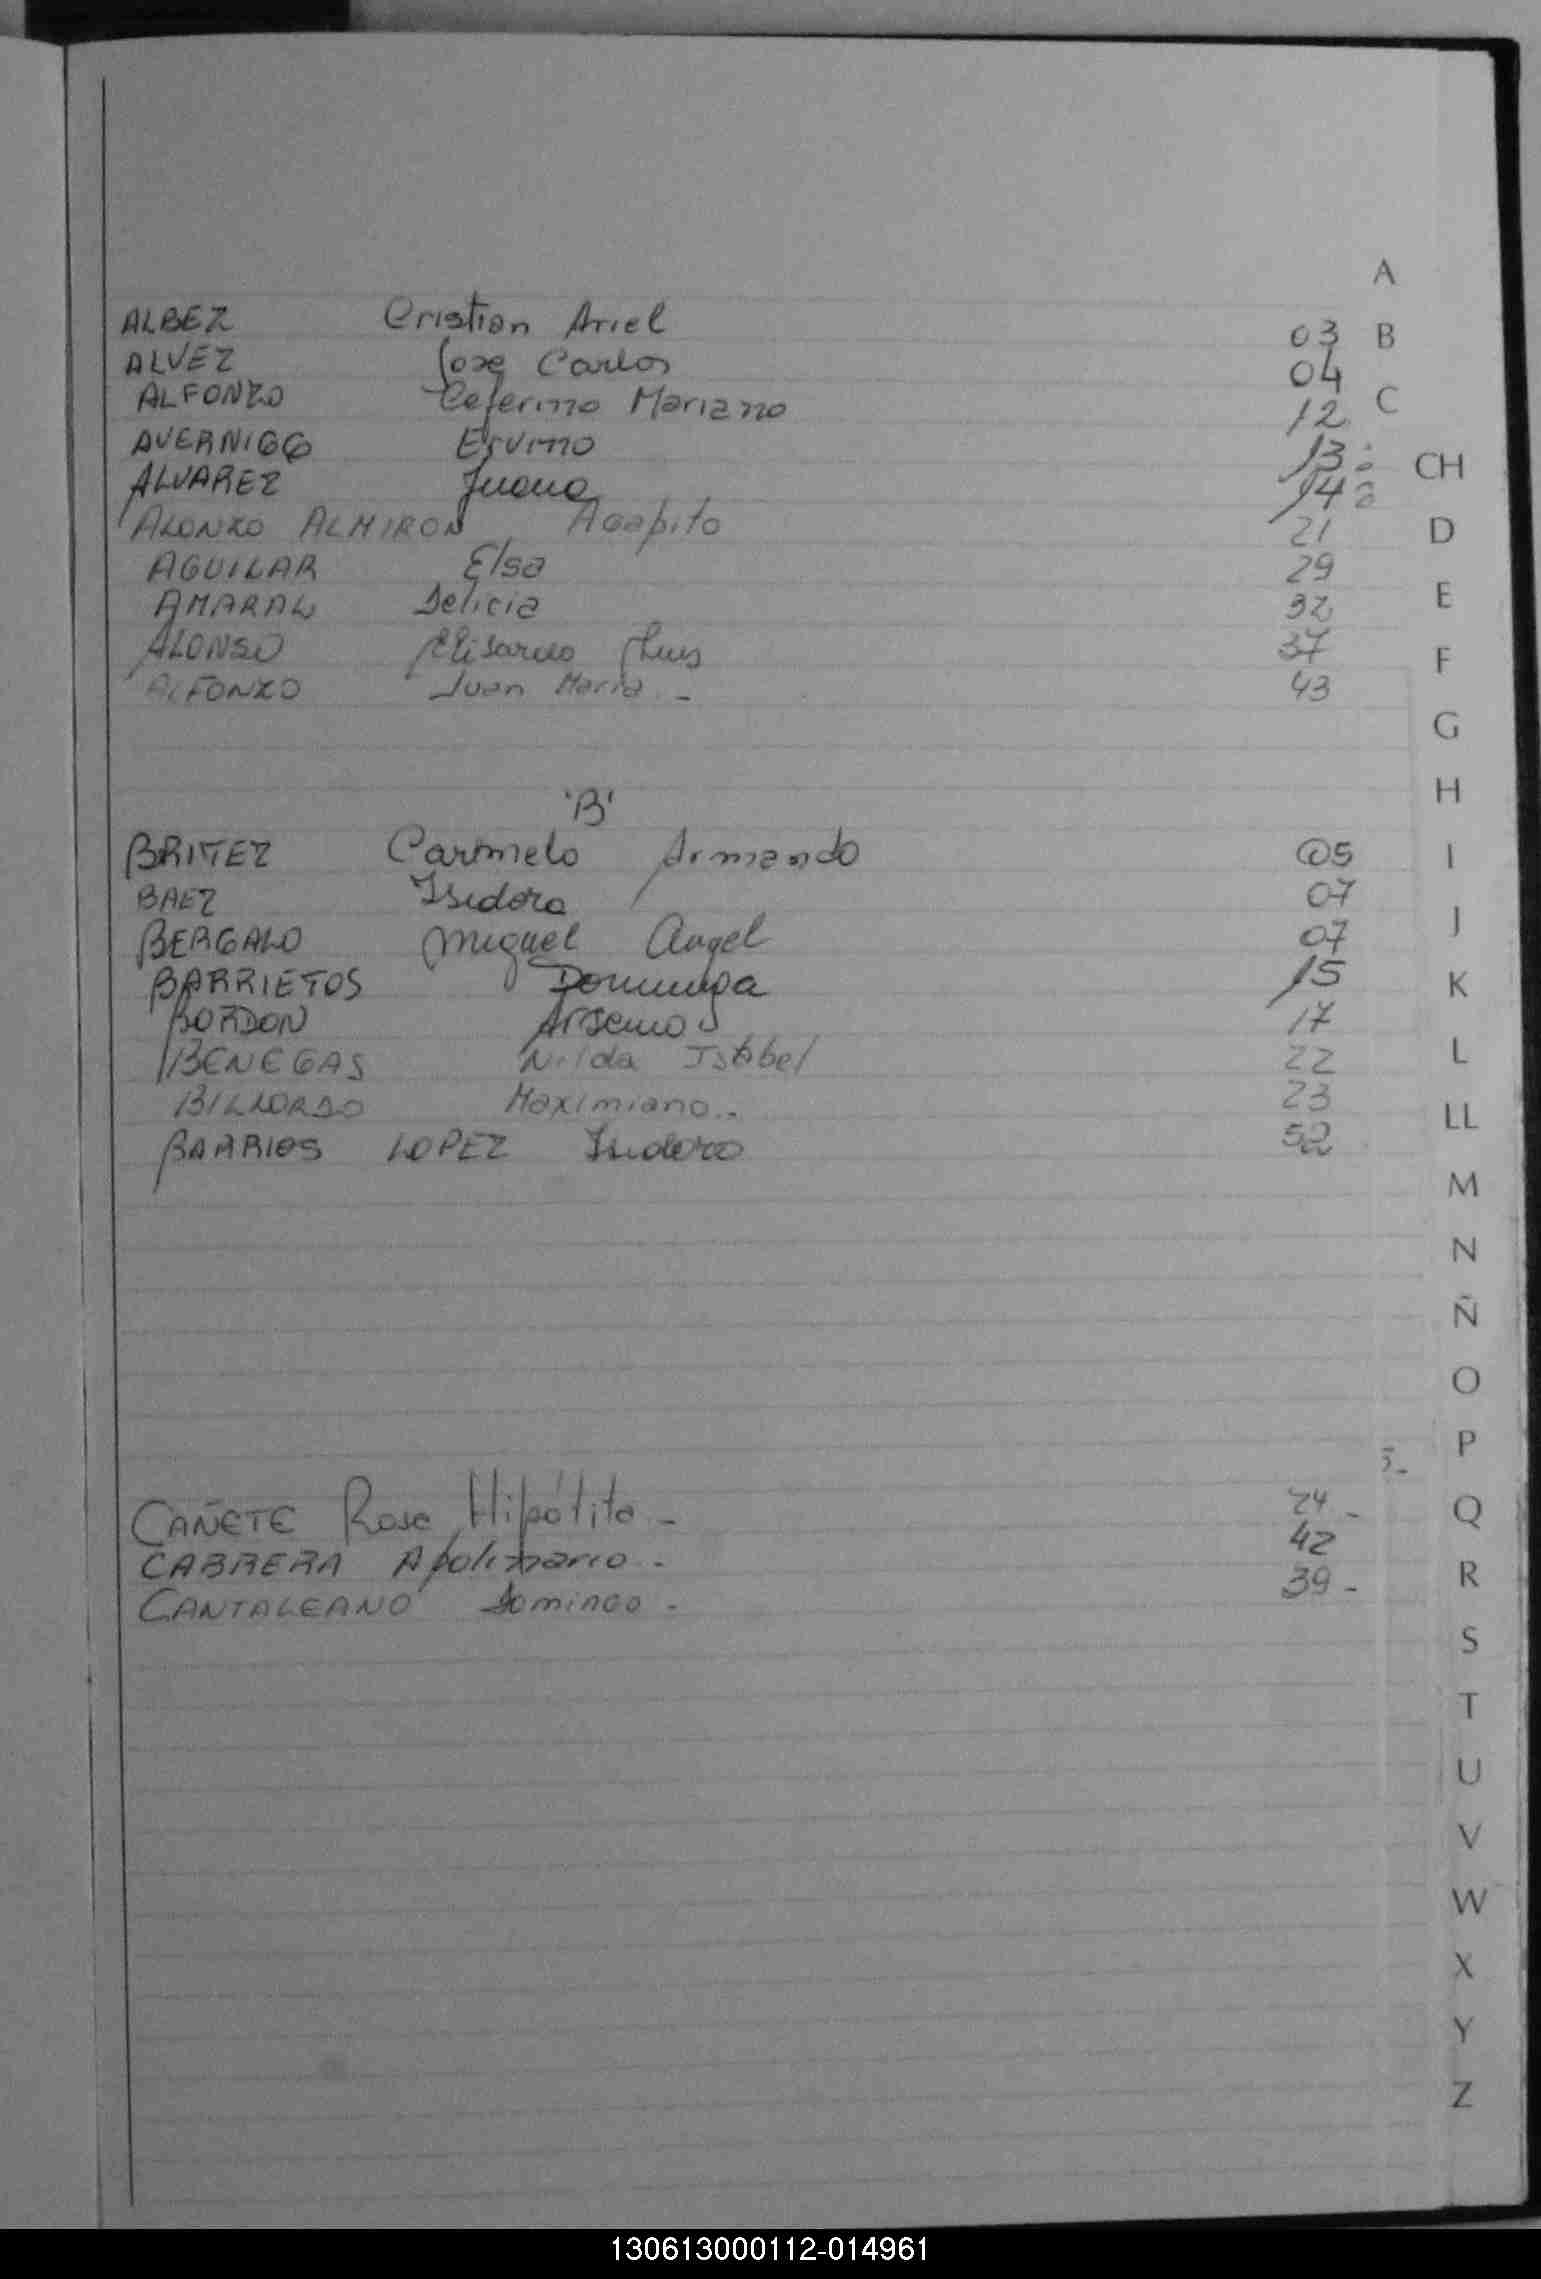 A
ALBEZ Cristian Ariel 03
B
ALVEZ Jose Carlos 04
ALFONZO Ceferino Mariano 12
C
AVERNIGO Ervino 13
CH
ALVAREZ Juana 14
ALONZO ALMIRON Agapito 21
D
AGUILAR Elsa 29
AMARAL Delicia 32
E
ALONSO Elisardo Luis 37
F
ALFONZO Juan Maria.- 43
G
H
'B'
BRITEZ Carmelo Armando 05
I
BAEZ Isidora 07
J
BERGALO Miguel Angel 07
BARRIETOS Dominga 15
K
BORDON Arsenio 17
BENEGAS Nilda Isabel 22
L
BILLORDO Maximiano.- 23
LL
BARRIOS LOPEZ Isidoro 52
M
N
Ñ
O
P
CAÑETE Rosa Hipólita.- 24-
Q
CABRERA Apolinario.- 42
R
CANTALEANO Domingo.- 39-
S
T
U
V
W
X
Y
Z
130613000112-014961